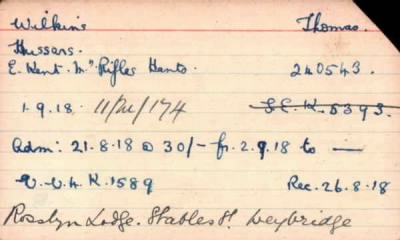 Wilkins Thomas.
Hussars.
E. Kent. Mn Rifles Hants. 240543.
1.9.18. 11/M/174 S.E.K. 5393.
Adm: 21.8.18 @ 30/- fr. 2.9.18 to —
K.1589 Rec. 26.8.18
Rosslyn Lodge. Stables St. Weybridge